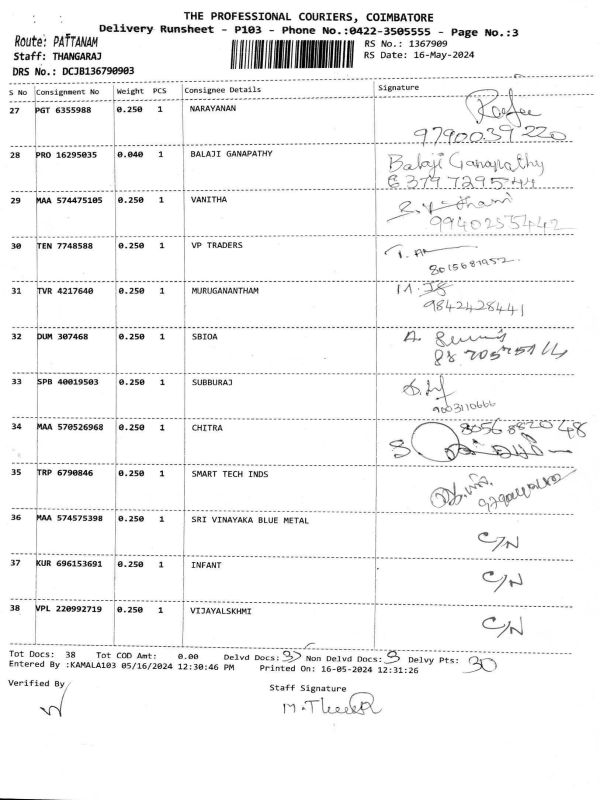 THE PROFESSIONAL COURIERS, COIMBATORE
Delivery Runsheet - P103 - Phone No.:0422-3505555 - Page No.:3
Route: PATTANAM RS No.: 1367909
Staff: THANGARAJ RS Date: 16-May-2024
DRS No.: DCJB136790903
S No Consignment No Weight PCS Consignee Details Signature
27 PGT 6355988 0.250 1 NARAYANAN
9790039220
28 PRO 16295035 0.040 1 BALAJI GANAPATHY Balaji Ganapathy
6379729544
29 MAA 574475105 0.250 1 VANITHA
30 TEN 7748588 0.250 1 VP TRADERS
31 TVR 4217640 0.250 1 MURUGANANTHAM
9842428441
32 DUM 307468 0.250 1 SBIOA
33 SPB 40019503 0.250 1 SUBBURAJ
9003110666
34 MAA 570526968 0.250 1 CHITRA
35 TRP 6790846 0.250 1 SMART TECH INDS
36 MAA 574575398 0.250 1 SRI VINAYAKA BLUE METAL C/N
37 KUR 696153691 0.250 1 INFANT C/N
38 VPL 220992719 0.250 1 VIJAYALSKHMI C/N
Tot Docs: 38 Tot COD Amt: 0.00 Delvd Docs: Non Delvd Docs: Delvy Pts: 30
Entered By :KAMALA103 05/16/2024 12:30:46 PM Printed On: 16-05-2024 12:31:26
Verified By Staff Signature